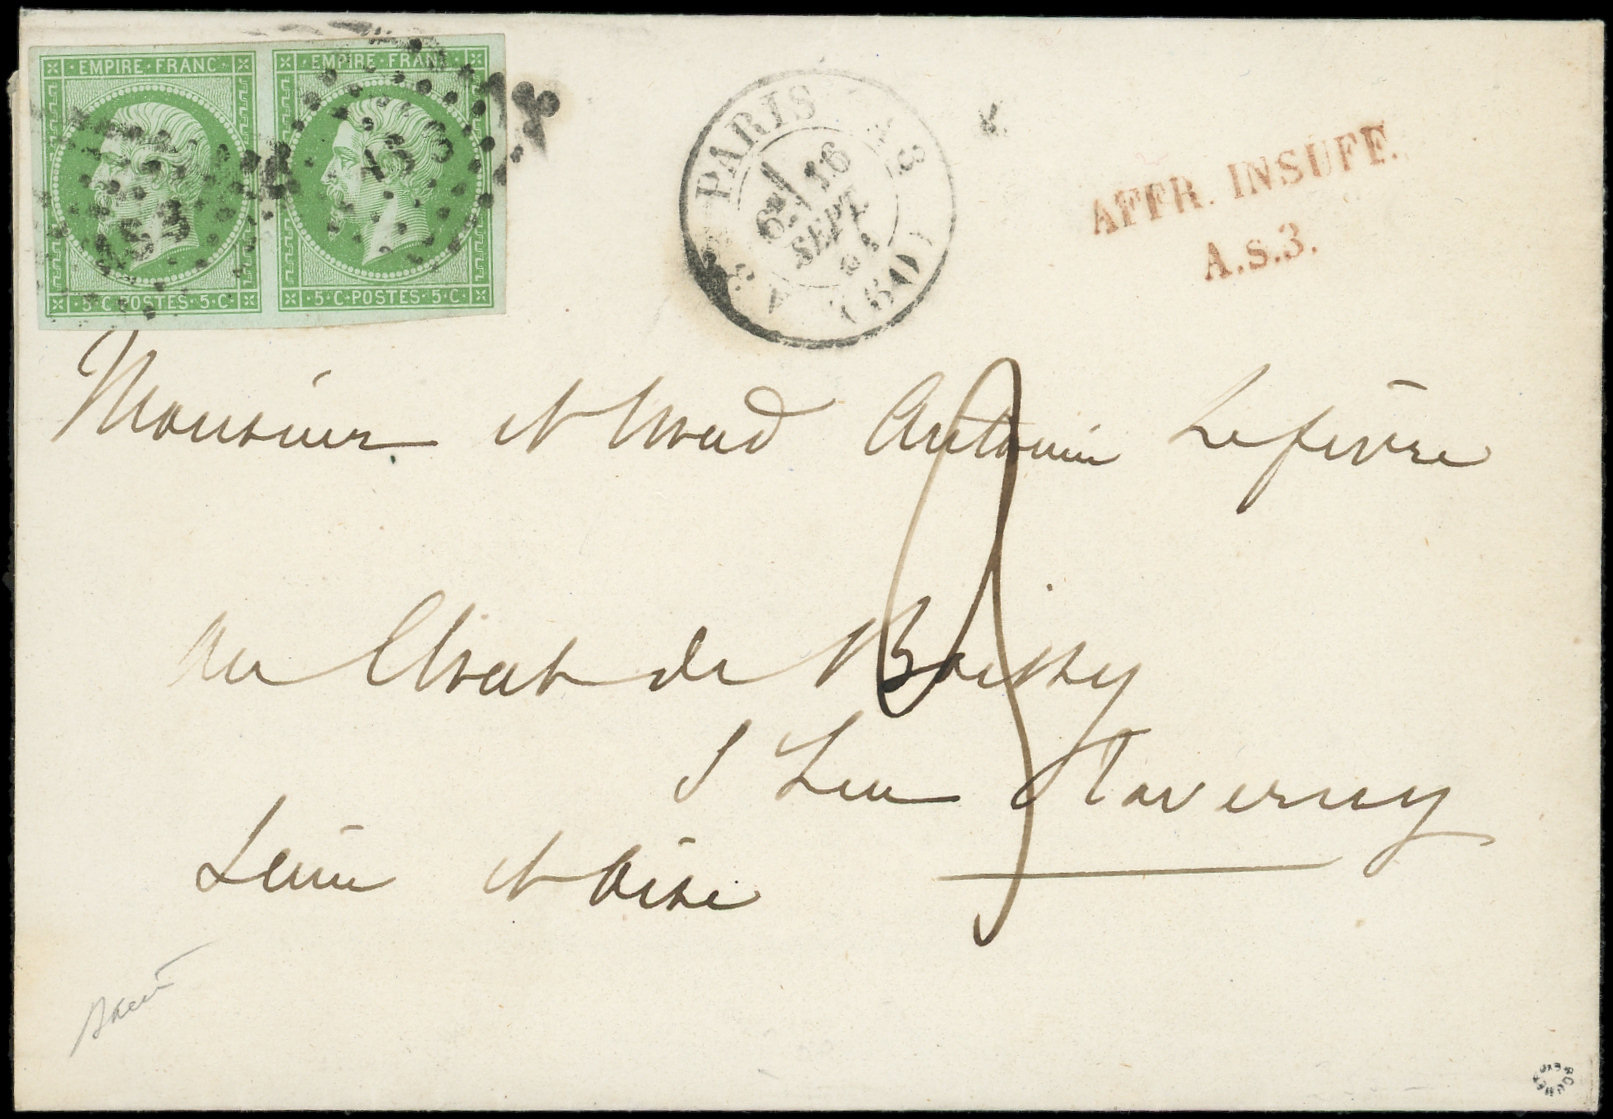 EMPIRE·FRANC EMPIRE·FRANC
AS3 AS3
5·C·POSTES·5·C· ·5·C·POSTES·5·C·
PARIS A.S.3
6E 16
SEPT.
61
(60)
AFFR. INSUFF.
A.S.3.
Monsieur et Mad Antonin Lefèvre
au Chat de Boissy
S Leu Taverny
Seine et Oise
ROUMET
EXP